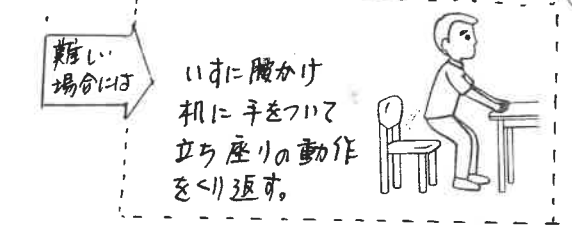 難しい
場合には
いすに腰かけ
机に手をついて
立ち座りの動作
をくり返す。